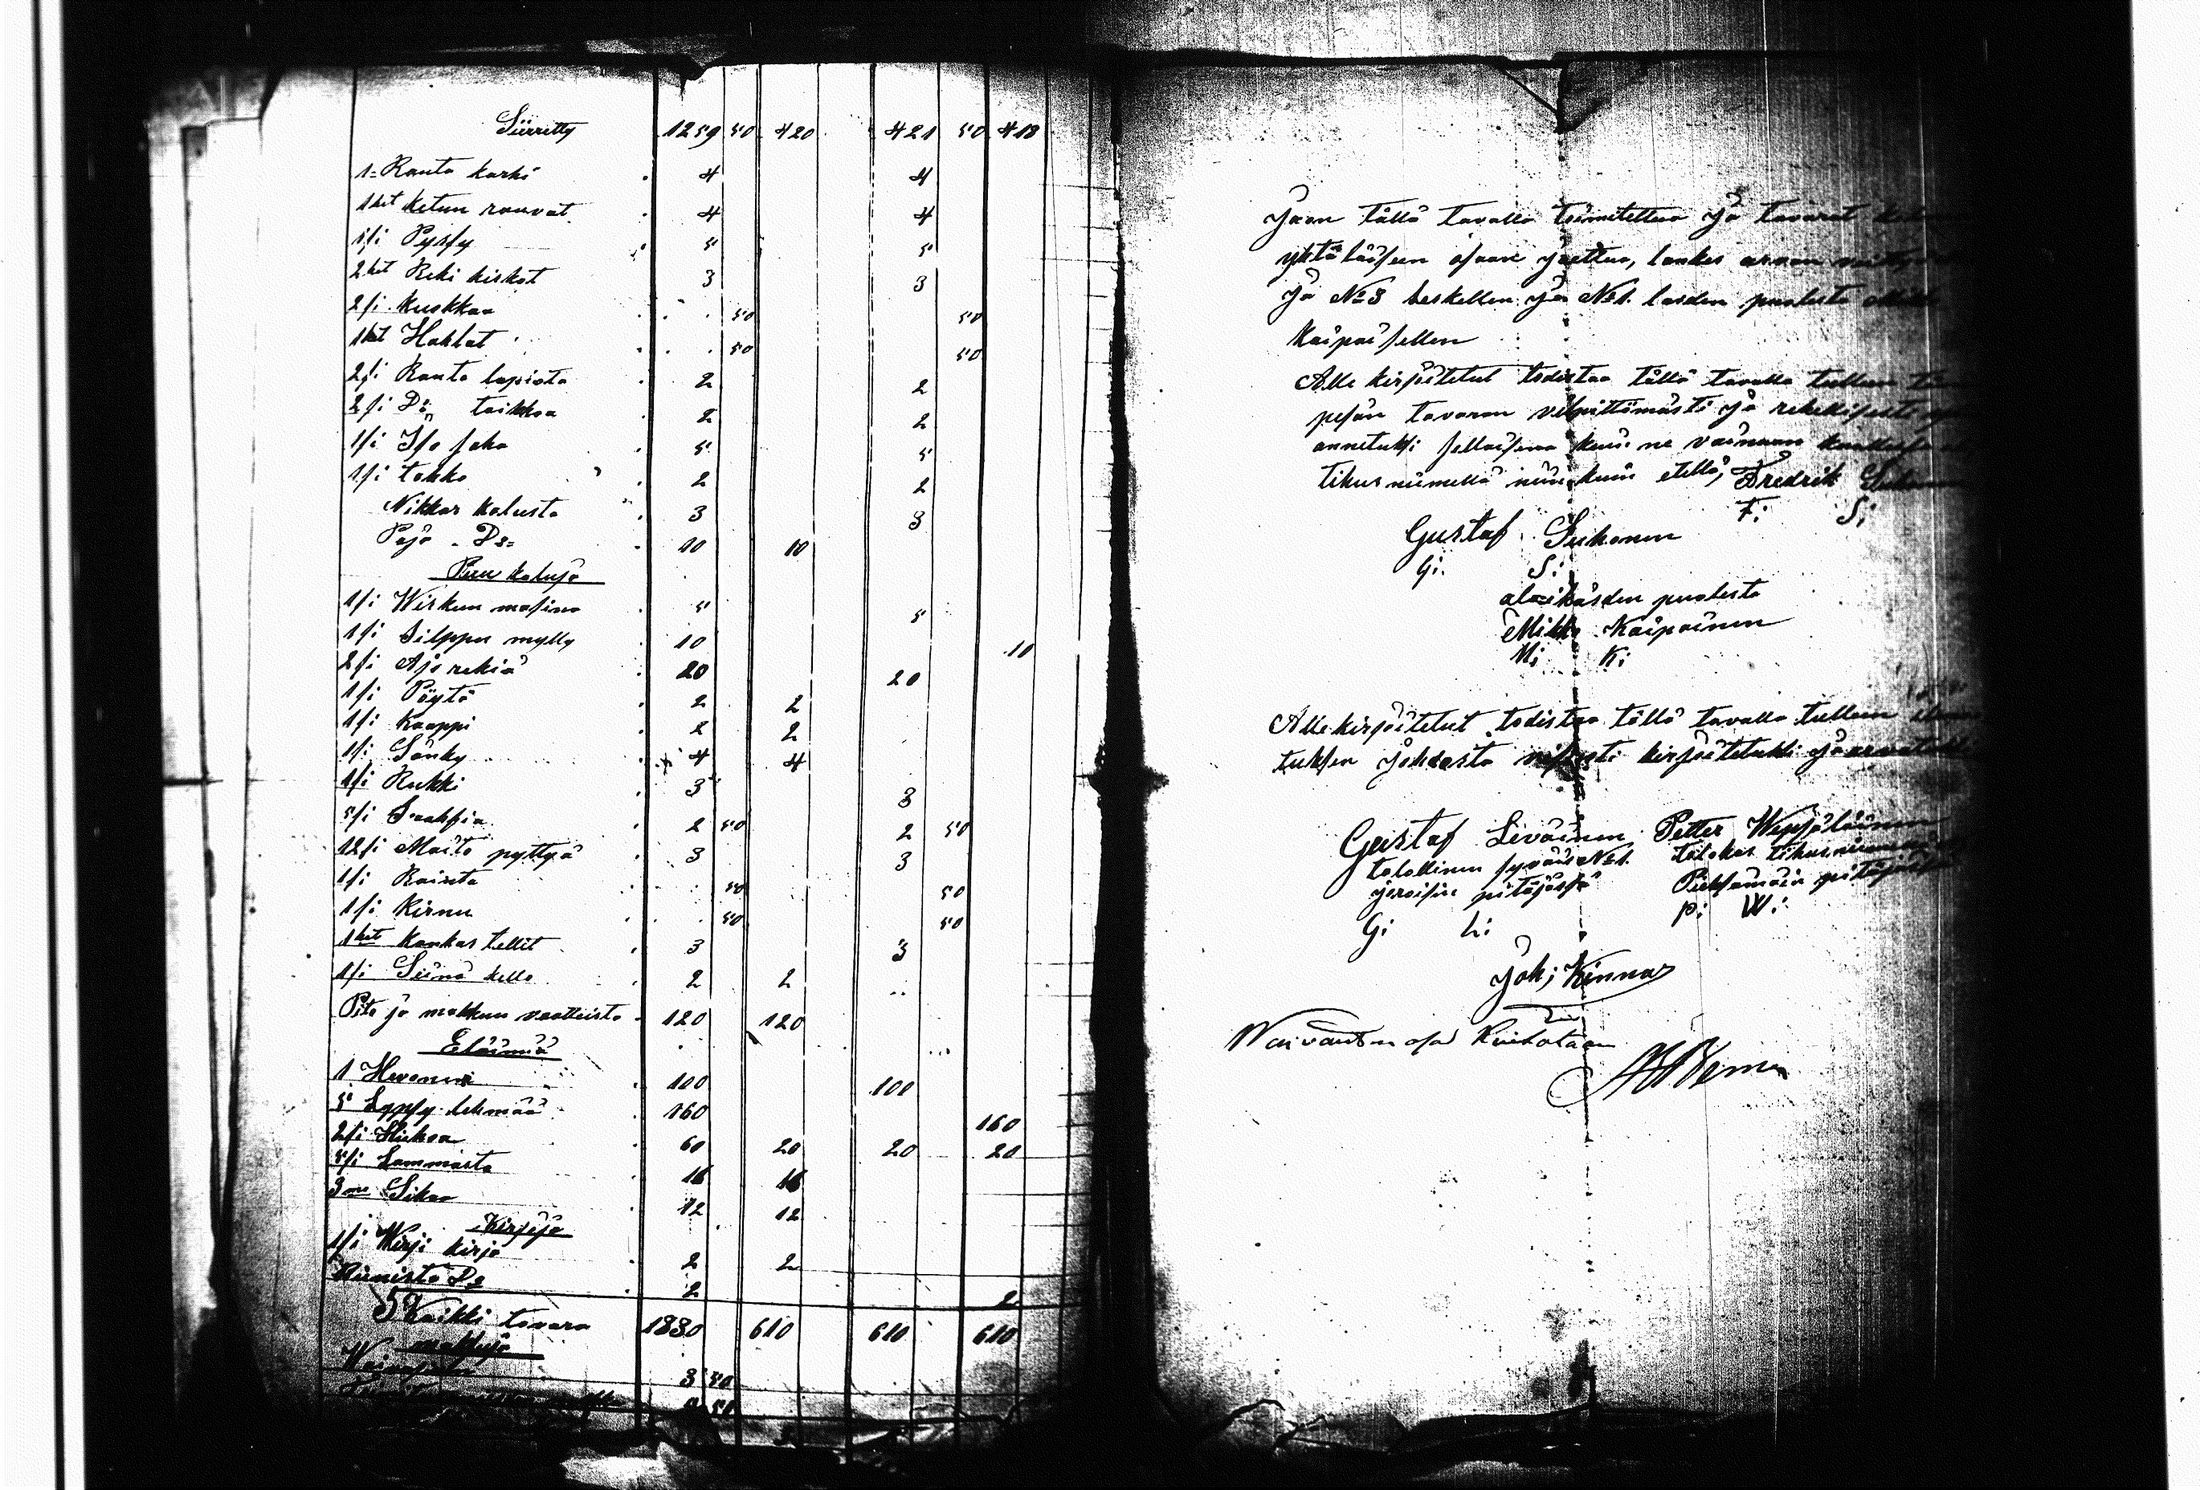 Siirretty 1259 50 420 421 50 418
1= Rauta karhi 4 4
1ket Ketun rauvat 4 4
1/i Pyssy 5 5
2ket Reki kiskot 3 3
2/i kuokkaa 50 50
1ket Hahlat 50 50
2/i Rauta lapiota 2 2
2/i Do taikkoa 2 2
1/i Iso saha 5 5
1/i tahko 2 2
Nikkar kalusta 3 3
Paja Do= 10 10
Puu kaluja
1/i Wirkun masina 5 5
1/i Silppu mylly 10 10
2/i Ajo rekiä 20 20
1/i Pöytä 2 2
1/i Kaappi 2 2
1/i Sänky 4 4
1/i Rukki 3 3
5/i Saaksia 2 50 2 50
12/i Maito pyttyä 3 3
1/i Rainta 50 50
1/i Kirnu 50 50
1ket Kankas tellit 3 3
1/i Seinä kello 2 2
Pito ja makkuu vaatteista 120 120
Eläimiä
1 Hevonen 100 100
5 Lypsy lehmää 160 160
2/i Hiehoa 60 20 20 20
5/i Lammasta 16 16
3me Sikaa 12 12
Kirjoja
1/i Wirsi kirja 2 2
2 2
Kaikki tavara 1830 610 610 610
maksuja
3 50
50
Jaon tällä tavalla toimitettua ja tavarat
yhtäläiseen osaan jaettua, lankes arvan
ja No 3 leskellen ja No 1. lasden puolesta
Kaipaisellen
Alle kirjoitetut todistaa tällä tavalla tulleen
pesän tavaran vilpittömästi ja rehellisesti
annetuksi sellaisena kuin ne vainaan
tikus nimellä niin kuin etellä, Fredrik
F: S:
Gustaf Suhonen
G: S:
alaikäsden puolesta
Mikko Kaipainen
M: K:
Allekirjoitetut todistaa tällä tavalla tulleen
tuksen johdosta kirjoitetuksi ja
Gustaf Leväinen Petter Wepsäläinen
talollinen No 1.
joroisin pitäjässä Pieksämäin
G: L: P: W:
Joh; Kinnar
Waivaisten osa Kuitataan